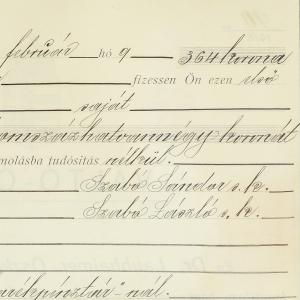 február hó 9 364 korona
fizessen Ön ezen első
saját
omszázhatvannégy koronát
molásba tudósítás nélkül.
Szabó Sándor s. k.
Szabó László s. k.
arékpénztár"-nál.